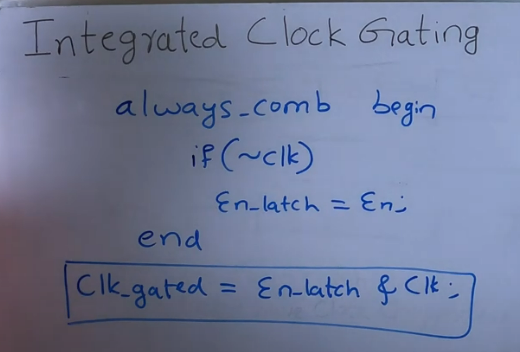 Integrated Clock Gating
always_comb begin
if(~clk)
En_latch = En;
end
Clk_gated = En_latch & Clk;